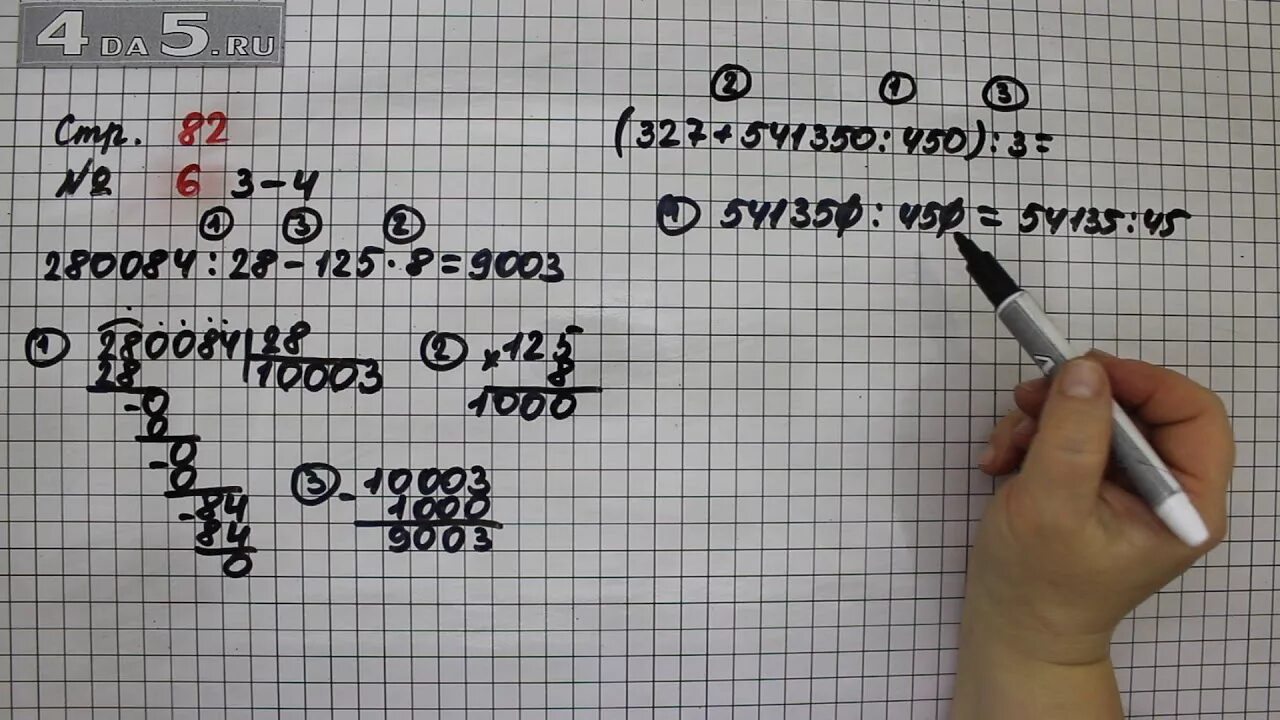 4 DA 5.RU
Стр. 82
№ 6 3-4
1 3 2
280084:28-125·8=9003
1 280084 28
28 10003
-0
0
-0
0
-84
84
0
2 ×125
8
1000
3 -10003
1000
9003
2 1 3
(327+541350:450):3=
1 541350:450=54135:45